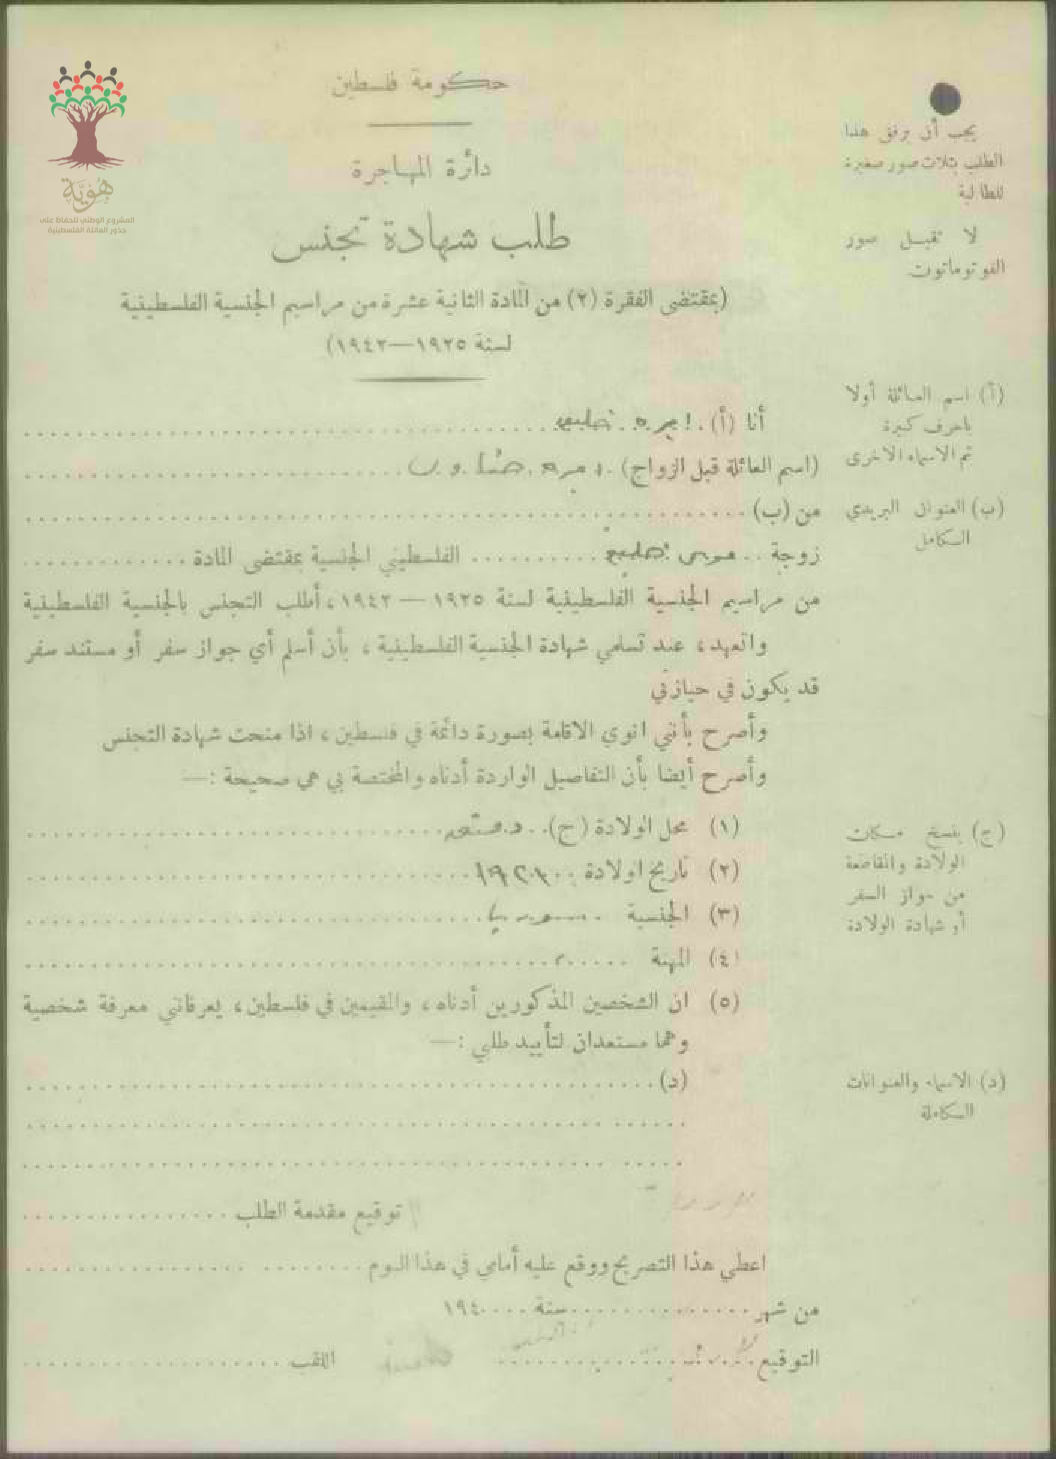 حكومة فلسطين
دائرة المهاجرة
طلب شهادة تجنس
(بمقتضى الفقرة (٢) من المادة الثانية عشرة من مراسيم الجنسية الفلسطينية
لسنة ١٩٢٥—١٩٤٢)
هوية
المشروع الوطني للحفاظ على
جذور العائلة الفلسطينية
يجب أن يرفق هذا
الطلب بثلاث صور صغيرة
للطالبة
لا تقبل صور
الفوتوماتون
أنا (أ)
(اسم العائلة قبل الزواج)
من (ب)
زوجة موسى الفلسطيني الجنسية بمقتضى المادة
من مراسيم الجنسية الفلسطينية لسنة ١٩٢٥ — ١٩٤٢، أطلب التجنس بالجنسية الفلسطينية
واتعهد، عند تسلمي شهادة الجنسية الفلسطينية، بأن أسلم أي جواز سفر أو مستند سفر
قد يكون في حيازتي
وأصرح بأنني انوي الاقامة بصورة دائمة في فلسطين، اذا منحت شهادة التجنس
وأصرح أيضا بأن التفاصيل الواردة أدناه والمختصة بي هي صحيحة :—
(١) محل الولادة (ج)
(٢) تاريخ الولادة
(٣) الجنسية
(٤) المهنة
(٥) ان الشخصين المذكورين أدناه، والمقيمين في فلسطين، يعرفانني معرفة شخصية
وهما مستعدان لتأييد طلبي :—
(د)
توقيع مقدمة الطلب
اعطي هذا التصريح ووقع عليه أمامي في هذا اليوم
من شهر سنة ١٩٤
التوقيع اللقب
(أ) اسم العائلة أولا
باحرف كبيرة
ثم الاسماء الاخرى
(ب) العنوان البريدي
الكامل
(ج) ينسخ مكان
الولادة والمقاطعة
من جواز السفر
أو شهادة الولادة
(د) الاسماء والعنوانات
الكاملة